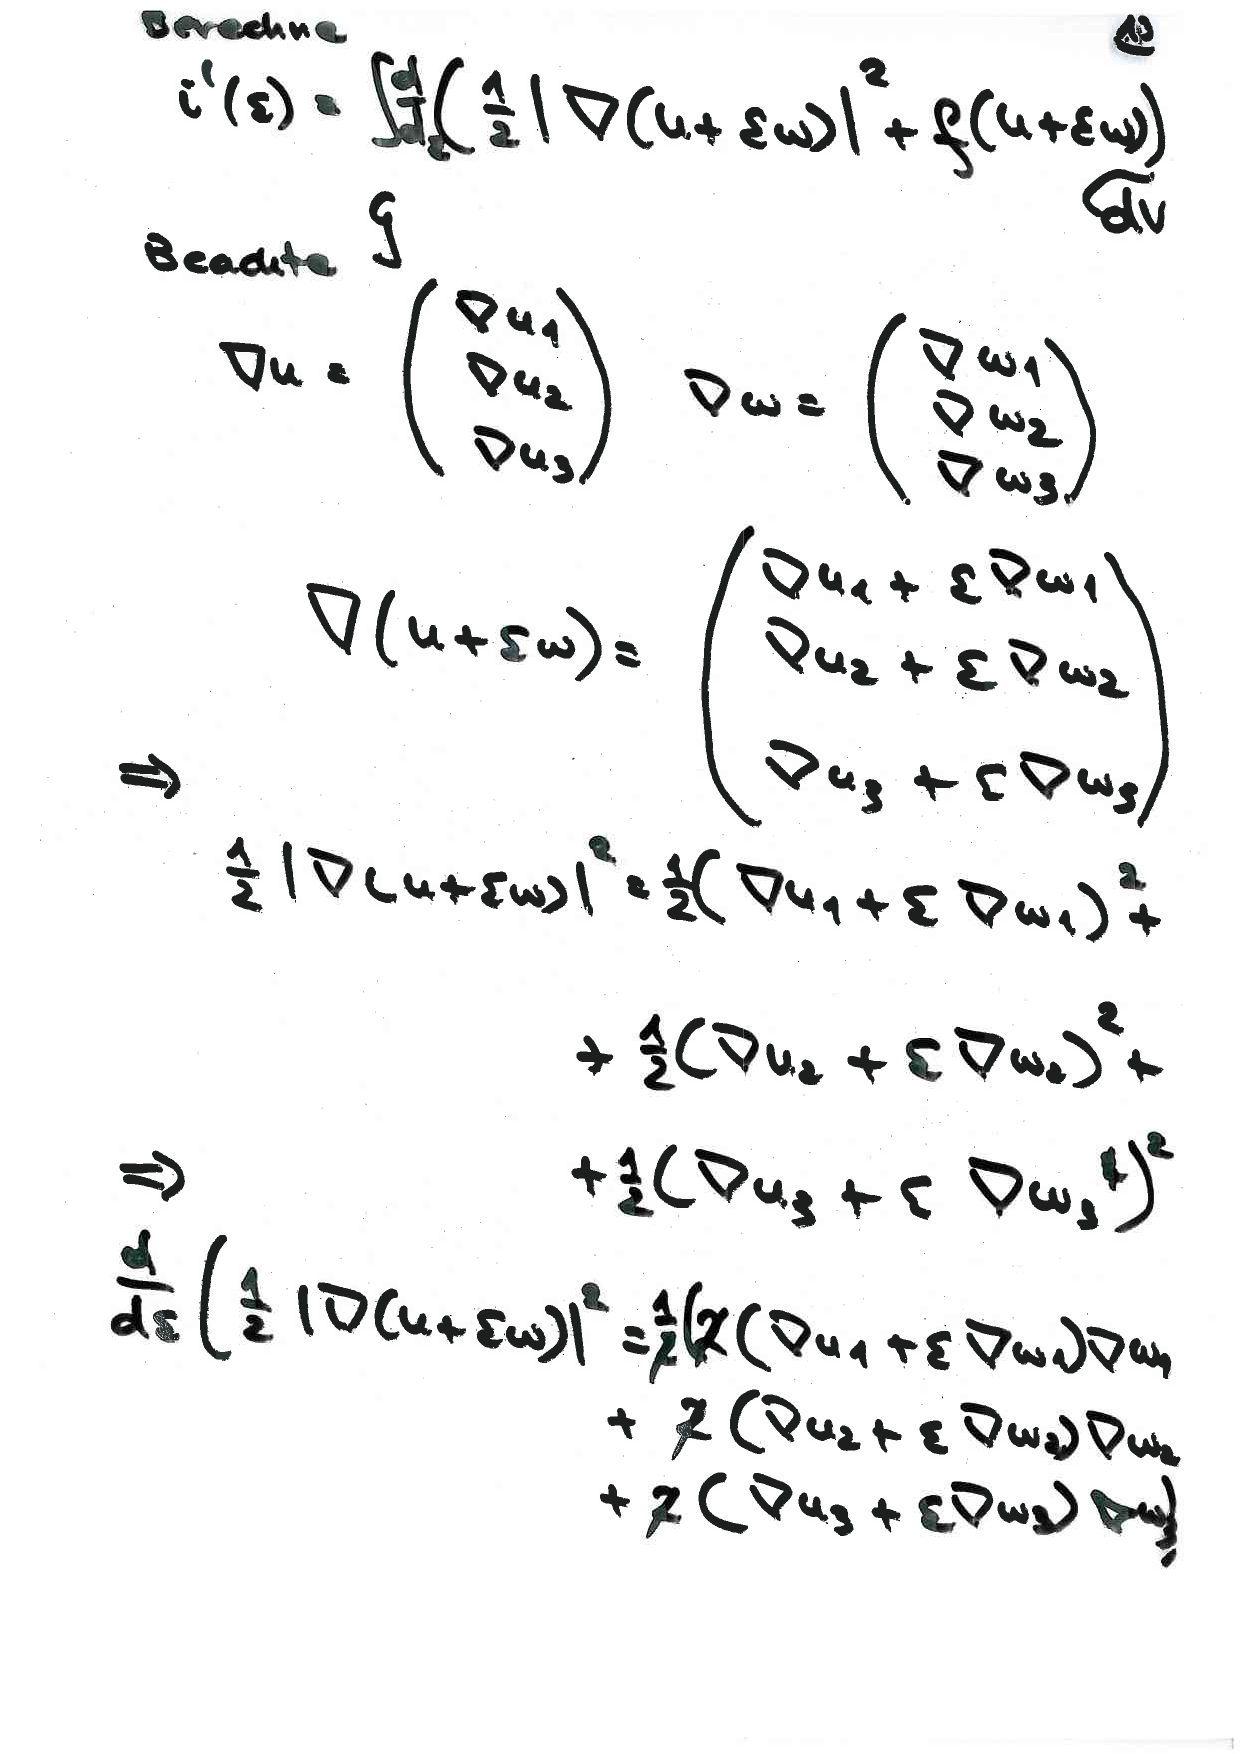 Berechne 10
i'(ε) = ∫ d/dε ( 1/2 | ∇(u + εω)|² + f(u + εω))
G dV
Beachte
∇u = ( ∇u1 ∇u2 ∇u3 ) ∇ω = ( ∇ω1 ∇ω2 ∇ω3 )
∇(u + εω) = ( ∇u1 + ε∇ω1
∇u2 + ε∇ω2
∇u3 + ε∇ω3 )
⇒
1/2 |∇(u + εω)|² = 1/2 (∇u1 + ε∇ω1)² +
+ 1/2 (∇u2 + ε∇ω2)² +
⇒ + 1/2 (∇u3 + ε ∇ω3)²
d/dε ( 1/2 |∇(u + εω)|² = 1/2 (2(∇u1 + ε∇ω1)∇ω1
+ 2 (∇u2 + ε∇ω2)∇ω2
+ 2 (∇u3 + ε∇ω3) ∇ω3)